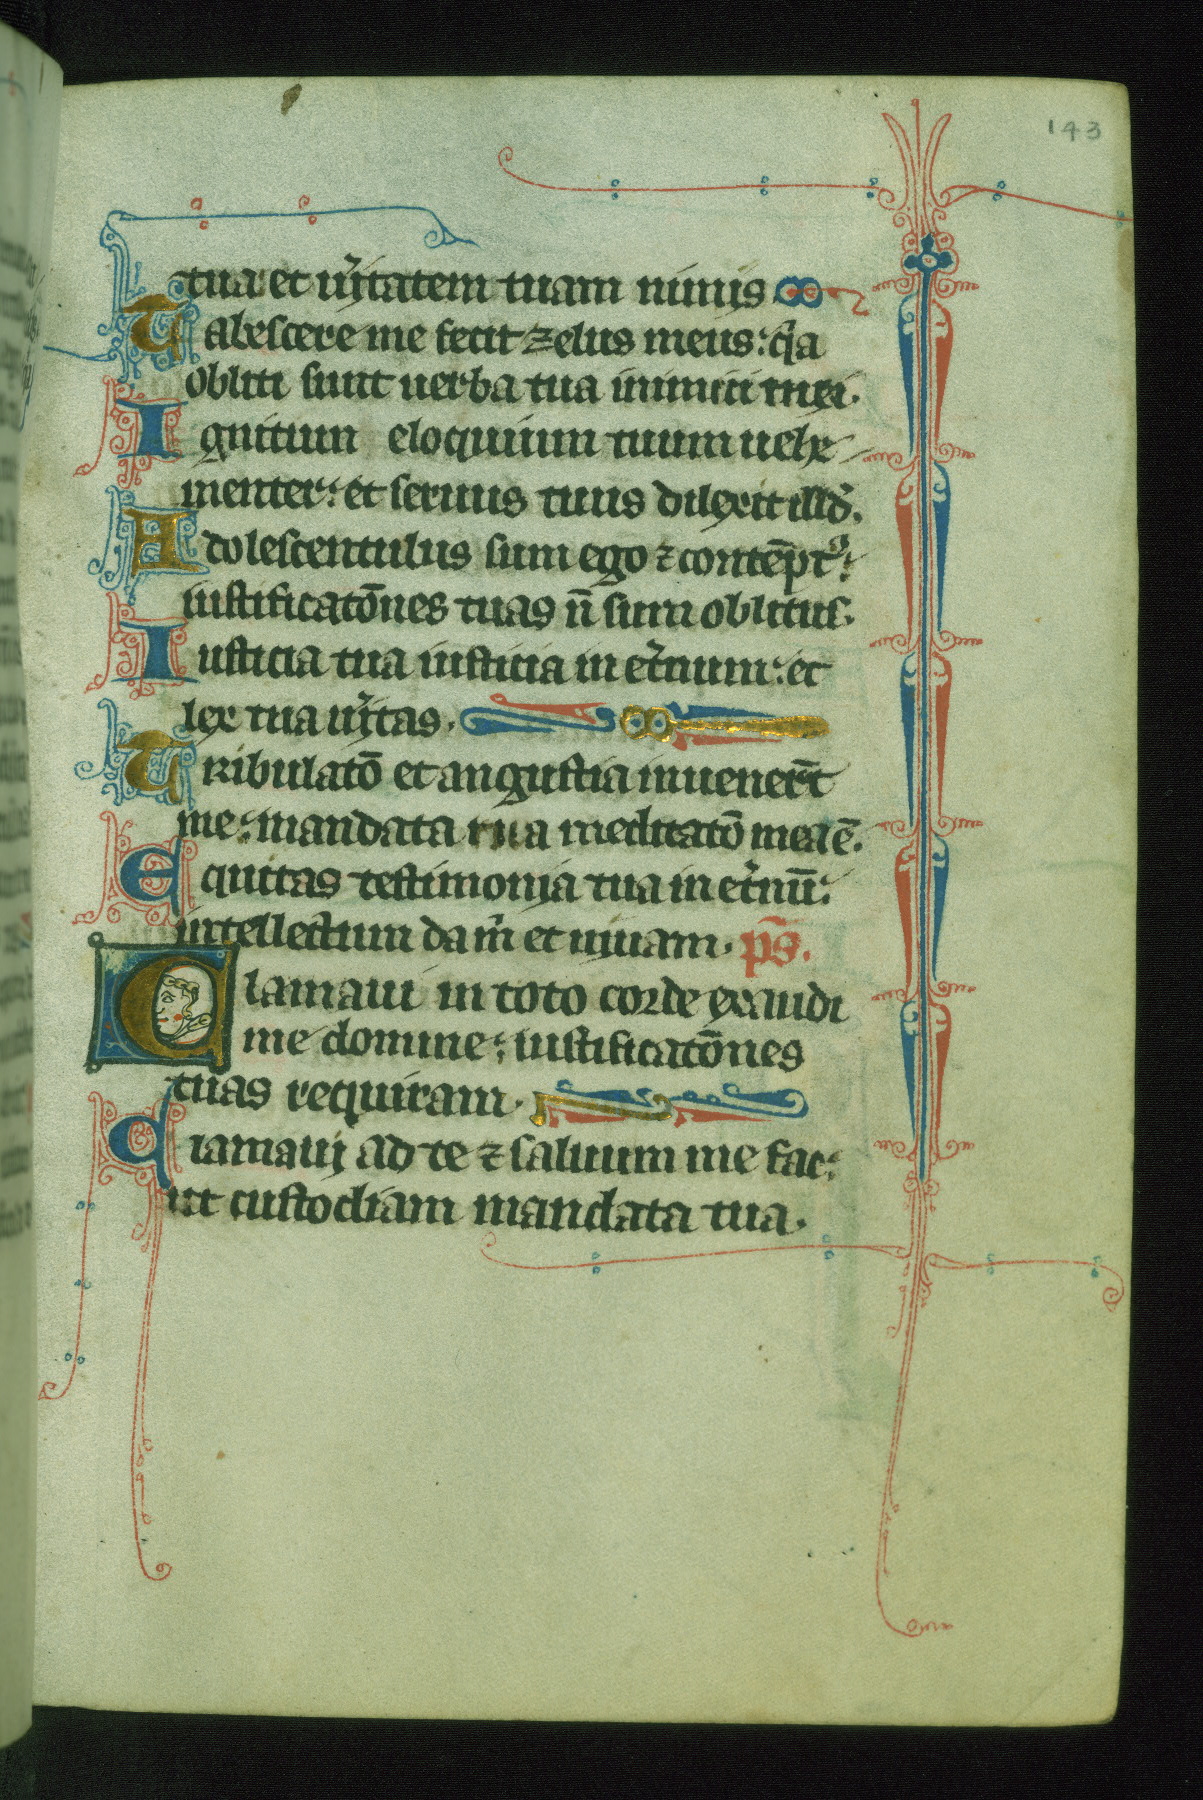 143
tua et ūitatem tuam nimis
Tabescere me fecit zelus meus: q̄a
obliti sunt uerba tua inimici mei.
Ignitum eloquium tuum uehe
menter: et seruus tuus dilexit illđ.
Adolescentulus sum ego ⁊ contēptꝰ:
iustificatōnes tuas n̄ sum oblitus.
Iusticia tua iusticia in et̄num: et
lex tua ūitas.
Tribulatō et angustia inuener̄t
me: mandata tua meditatō mea ē.
Equitas testimonia tua in et̄nū:
intellectum da m̄ et uiuam. p̄s.
Clamaui in toto corde exaudi
me domine: iustificatōnes
tuas requiram.
Clamaui ad te ⁊ saluum me fac:
ut custodiam mandata tua.